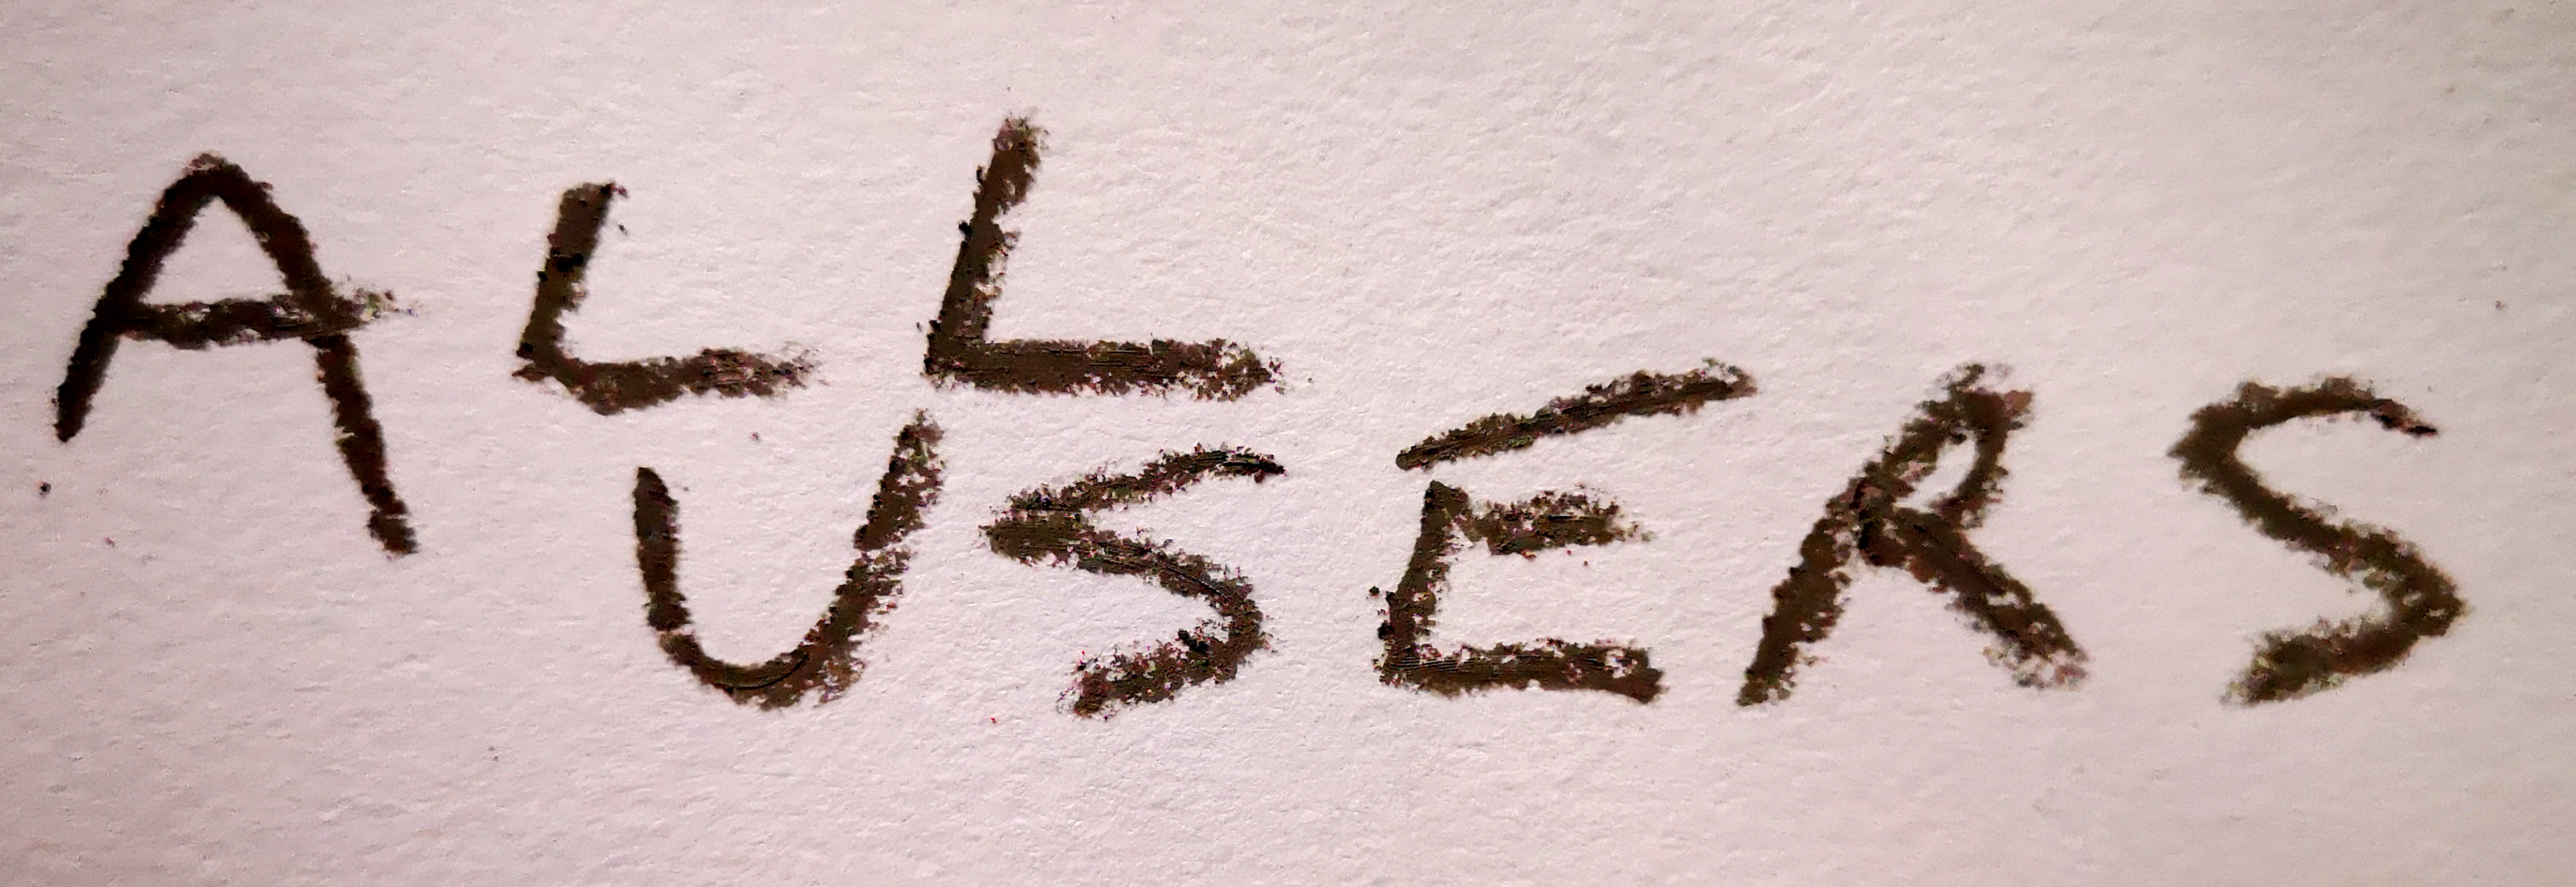 ALL
USERS